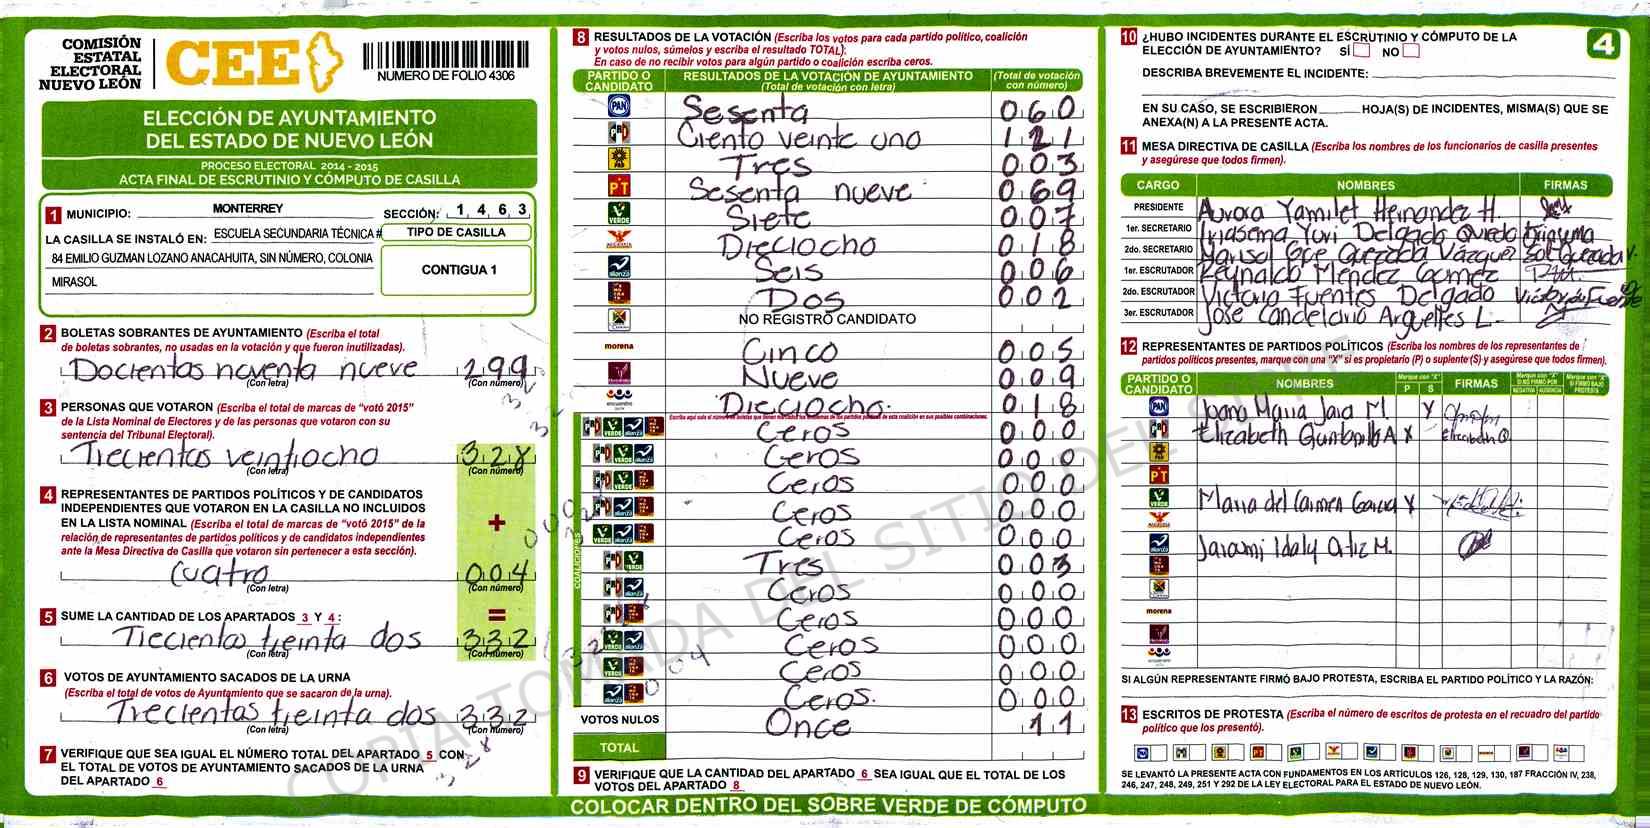 COMISIÓN
ESTATAL
ELECTORAL
NUEVO LEÓN
CEE
NUMERO DE FOLIO 4306
ELECCIÓN DE AYUNTAMIENTO
DEL ESTADO DE NUEVO LEÓN
PROCESO ELECTORAL 2014 - 2015
ACTA FINAL DE ESCRUTINIO Y CÓMPUTO DE CASILLA
1 MUNICIPIO: MONTERREY SECCIÓN: 1 4 6 3
LA CASILLA SE INSTALÓ EN: ESCUELA SECUNDARIA TÉCNICA #
84 EMILIO GUZMAN LOZANO ANACAHUITA, SIN NÚMERO, COLONIA
MIRASOL
TIPO DE CASILLA
CONTIGUA 1
2 BOLETAS SOBRANTES DE AYUNTAMIENTO (Escriba el total
de boletas sobrantes, no usadas en la votación y que fueron inutilizadas).
Docientos noventa nueve 299
(Con letra) (Con número)
3 PERSONAS QUE VOTARON (Escriba el total de marcas de "votó 2015"
de la Lista Nominal de Electores y de las personas que votaron con su
sentencia del Tribunal Electoral).
Trecientos veintiocho 328
(Con letra) (Con número)
4 REPRESENTANTES DE PARTIDOS POLÍTICOS Y DE CANDIDATOS
INDEPENDIENTES QUE VOTARON EN LA CASILLA NO INCLUIDOS
EN LA LISTA NOMINAL (Escriba el total de marcas de "votó 2015" de la
relación de representantes de partidos políticos y de candidatos independientes
ante la Mesa Directiva de Casilla que votaron sin pertenecer a esta sección).
+
cuatro 004
(Con letra) (Con número)
=
5 SUME LA CANTIDAD DE LOS APARTADOS 3 Y 4:
Trecientos treinta dos 332
(Con letra) (Con número)
6 VOTOS DE AYUNTAMIENTO SACADOS DE LA URNA
(Escriba el total de votos de Ayuntamiento que se sacaron de la urna).
Trecientas treinta dos 332
(Con letra) (Con número)
7 VERIFIQUE QUE SEA IGUAL EL NÚMERO TOTAL DEL APARTADO 5 CON
EL TOTAL DE VOTOS DE AYUNTAMIENTO SACADOS DE LA URNA
DEL APARTADO 6
328
8 RESULTADOS DE LA VOTACIÓN (Escriba los votos para cada partido político, coalición
y votos nulos, súmelos y escriba el resultado TOTAL).
En caso de no recibir votos para algún partido o coalición escriba ceros.
PARTIDO O CANDIDATO RESULTADOS DE LA VOTACIÓN DE AYUNTAMIENTO (Total de votación con letra) (Total de votación con número)
PAN Sesenta 060
PRD Ciento veinte uno 121
PRD Tres 003
PT Sesenta nueve 069
VERDE Siete 007
Dieciocho 018
alianza Seis 006
Dos 002
NO REGISTRÓ CANDIDATO
morena Cinco 005
Nueve 009
encuentro Dieciocho 018
COALICIONES
Ceros 000
Ceros 000
Ceros 000
Ceros 000
Ceros 000
Tres 003
Ceros 000
Ceros 000
Ceros 000
Ceros 000
Ceros. 000
VOTOS NULOS Once 11
TOTAL
9 VERIFIQUE QUE LA CANTIDAD DEL APARTADO 6 SEA IGUAL QUE EL TOTAL DE LOS
VOTOS DEL APARTADO 8
COLOCAR DENTRO DEL SOBRE VERDE DE CÓMPUTO
10 ¿HUBO INCIDENTES DURANTE EL ESCRUTINIO Y CÓMPUTO DE LA
ELECCIÓN DE AYUNTAMIENTO? SÍ NO
4
DESCRIBA BREVEMENTE EL INCIDENTE:
EN SU CASO, SE ESCRIBIERON HOJA(S) DE INCIDENTES, MISMA(S) QUE SE
ANEXA(N) A LA PRESENTE ACTA.
11 MESA DIRECTIVA DE CASILLA (Escriba los nombres de los funcionarios de casilla presentes
y asegúrese que todos firmen).
CARGO NOMBRES FIRMAS
PRESIDENTE Aurora Yamilet Hernandez H.
1er. SECRETARIO Yuri Delgado Oviedo
2do. SECRETARIO Marisol Gpe Quezada Vázquez Sol Quezada V.
1er. ESCRUTADOR Reynaldo Méndez Gomez
2do. ESCRUTADOR Victoria Fuentes Delgado
3er. ESCRUTADOR Jose Candelario Arguelles L.
12 REPRESENTANTES DE PARTIDOS POLÍTICOS (Escriba los nombres de los representantes de
partidos políticos presentes, marque con una "X" si es propietario (P) o suplente (S) y asegúrese que todos firmen).
PARTIDO O CANDIDATO NOMBRES Marque con "X" P S FIRMAS Marque con "X" SI NO FIRMÓ POR NEGATIVA AUSENCIA Marque con "X" SI FIRMÓ BAJO PROTESTA
PAN Juana Maria Jara M. X
Elizabeth Quintanilla A X Elizabeth Q
PRD
PT
VERDE Maria del Carmen Garcia X
alianza Idaly Ortiz M.
morena
encuentro
SI ALGÚN REPRESENTANTE FIRMÓ BAJO PROTESTA, ESCRIBA EL PARTIDO POLÍTICO Y LA RAZÓN:
13 ESCRITOS DE PROTESTA (Escriba el número de escritos de protesta en el recuadro del partido
político que los presentó).
SE LEVANTÓ LA PRESENTE ACTA CON FUNDAMENTOS EN LOS ARTÍCULOS 126, 128, 129, 130, 187 FRACCIÓN IV, 238,
246, 247, 248, 249, 251 Y 292 DE LA LEY ELECTORAL PARA EL ESTADO DE NUEVO LEÓN.
COPIA TOMADA DEL SITIO DEL SIPRE